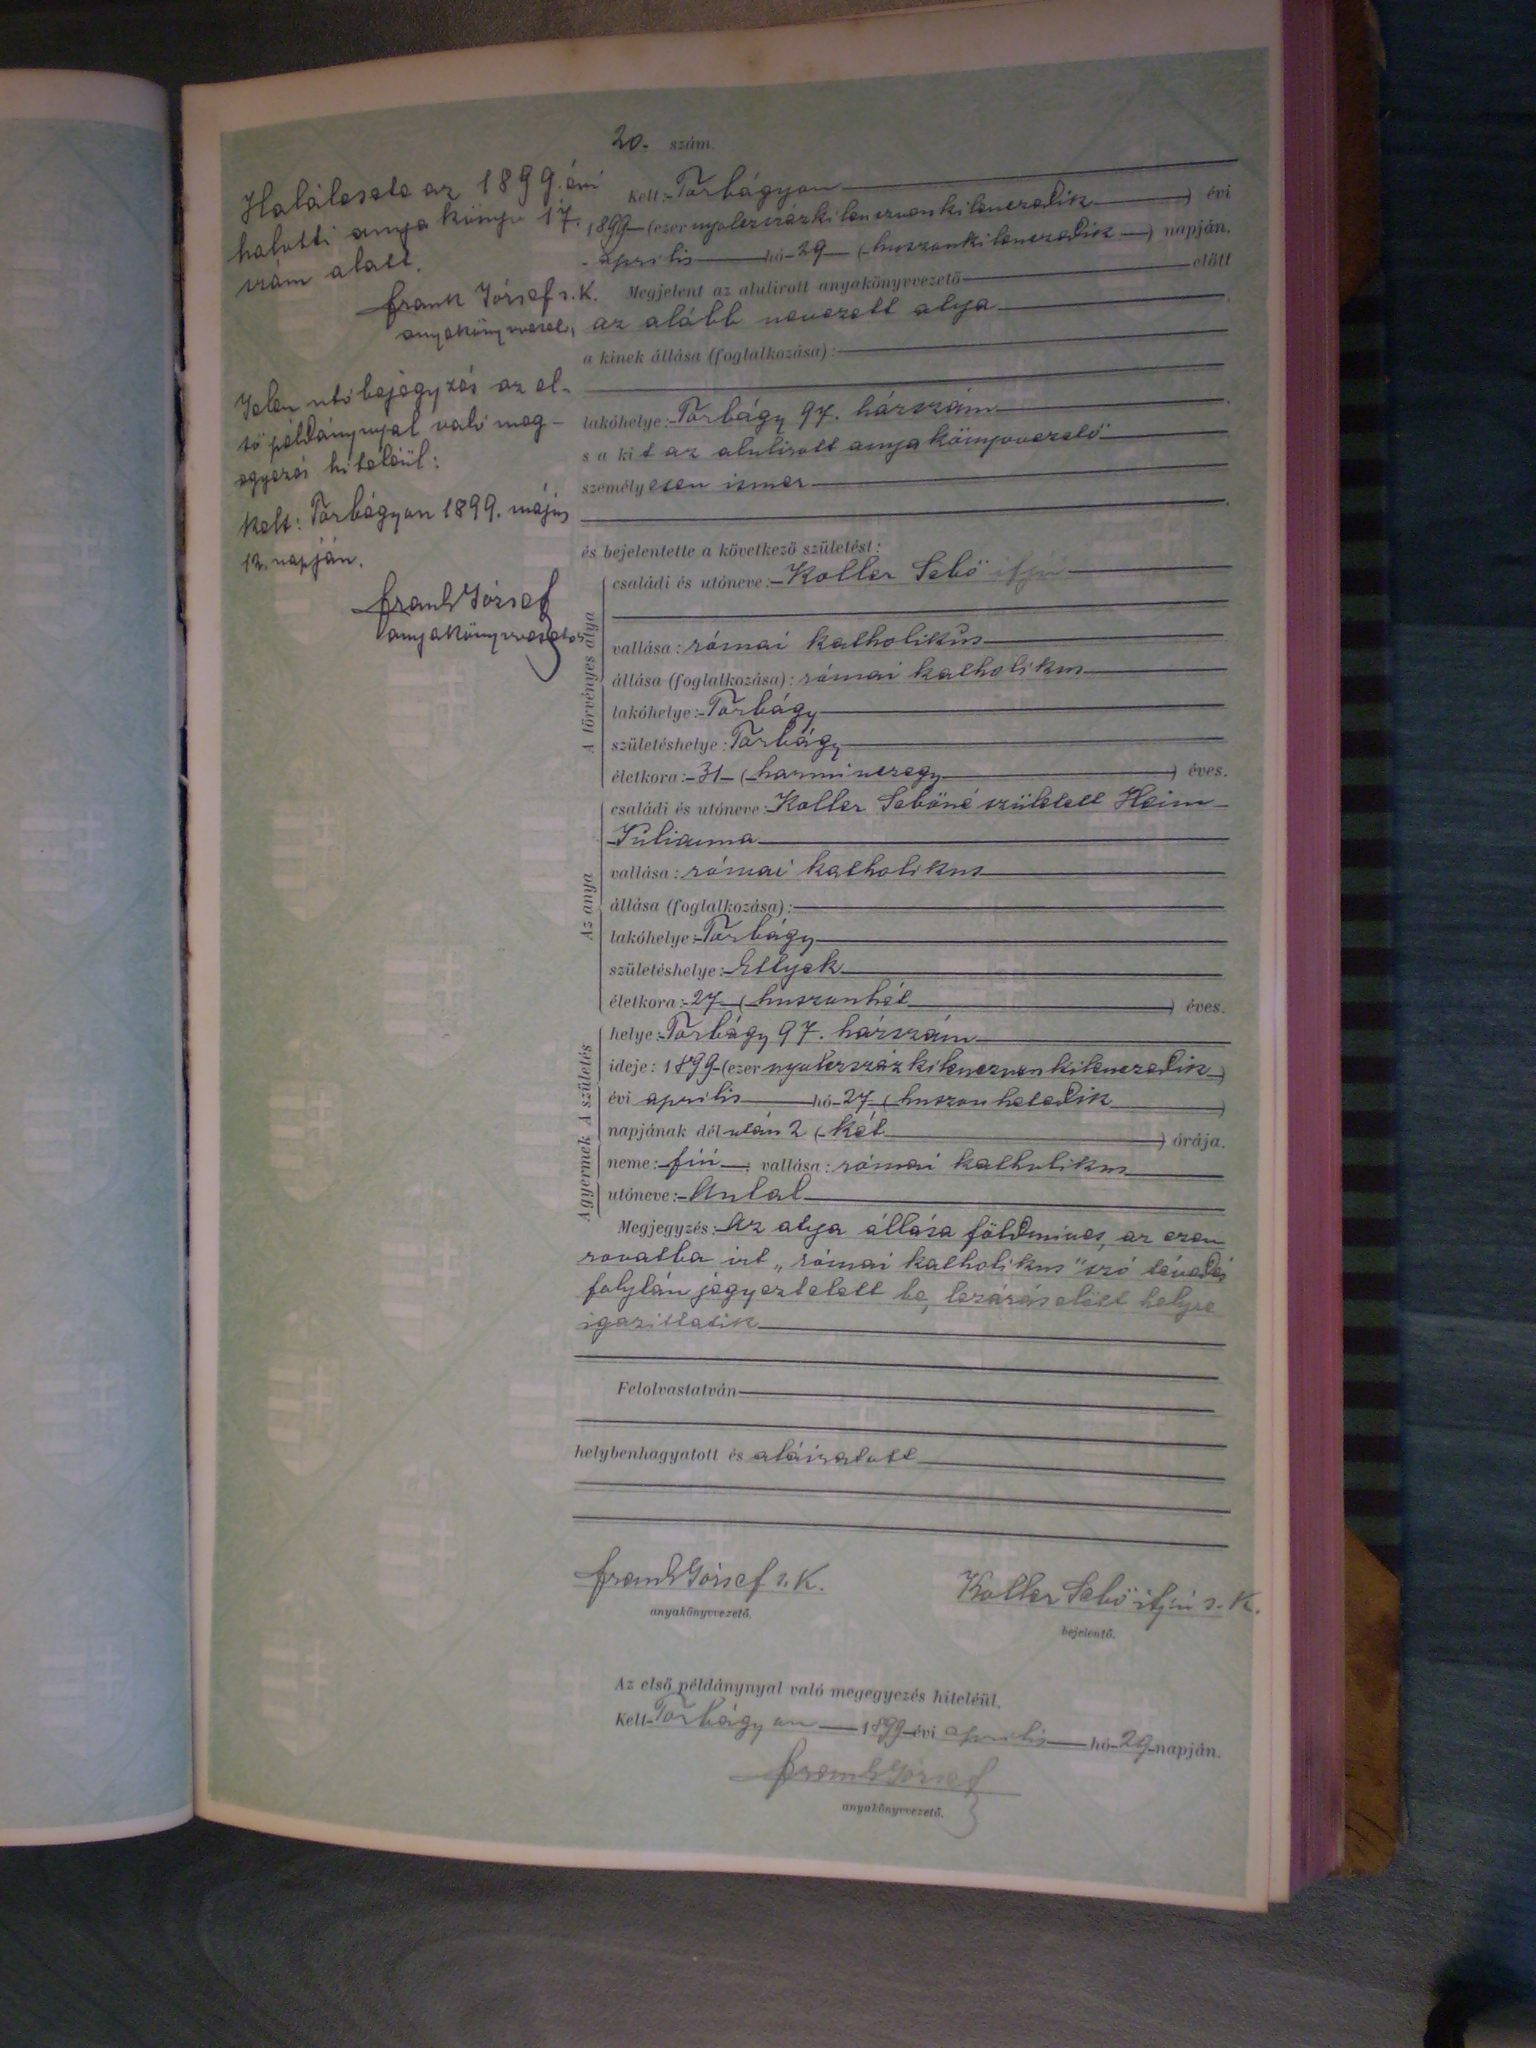 20. szám.
Halálesete az 1899. évi
halotti anyakönyv 17.
szám alatt.
Frank József s. k.
anyakönyvvezető,
Jelen utóbejegyzés az el-
ső példánynyal való meg-
egyezés hiteléül:
Kelt: Torbágyon 1899. május
12. napján.
Frank József
anyakönyvvezető
Kelt: Torbágyon
1899 (ezernyolczszázkilenczvenkilenczedik) évi
április hó 29 (huszonkilenczedik) napján.
Megjelent az alulirott anyakönyvvezető előtt
az alább nevezett atya
a kinek állása (foglalkozása):
lakóhelye: Torbágy 97. házszám
s a kit az alulirott anyakönyvvezető
személyesen ismer
és bejelentette a következő születést:
A törvényes atya
családi és utóneve: Koller Sebő ifjú
vallása: római katholikus
állása (foglalkozása): római katholikus
lakóhelye: Torbágy
születéshelye: Torbágy
életkora: 31 (harminczegy) éves.
Az anya
családi és utóneve: Koller Sebőné született Heim
Julianna
vallása: római katholikus
állása (foglalkozása):
lakóhelye: Torbágy
születéshelye: Ettyek
életkora: 27 (huszonhét) éves.
A születés
helye: Torbágy 97. házszám
ideje: 1899 (ezernyolczszázkilenczvenkilenczedik)
évi április hó 27 (huszonhetedik)
napjának délután 2 (két) órája.
A gyermek
neme: fiú; vallása: római katholikus
utóneve: Antal
Megjegyzés: Az atya állása földmives, az ezen
rovatba irt „római katholikus" szó tévedés
folytán jegyeztetett be, lezárás előtt helyre
igazittatik
Felolvastatván
helybenhagyatott és aláiratott
Frank József s. k.
anyakönyvvezető.
Koller Sebő ifjú s. k.
bejelentő.
Az első példánynyal való megegyezés hiteléül.
Kelt Torbágyon 1899 évi április hó 29 napján.
Frank József
anyakönyvvezető.